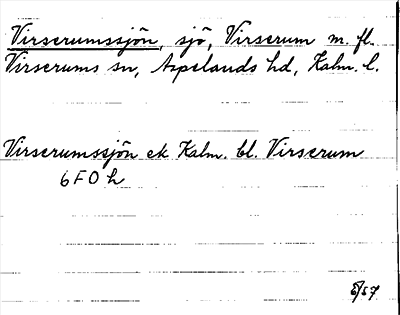 Virserumssjön, sjö, Virserum m. fl.
Virserums sn, Aspelands hd, Kalm. l.
Virserumssjön ek Kalm. bl. Virserum
6 F O h
5/57